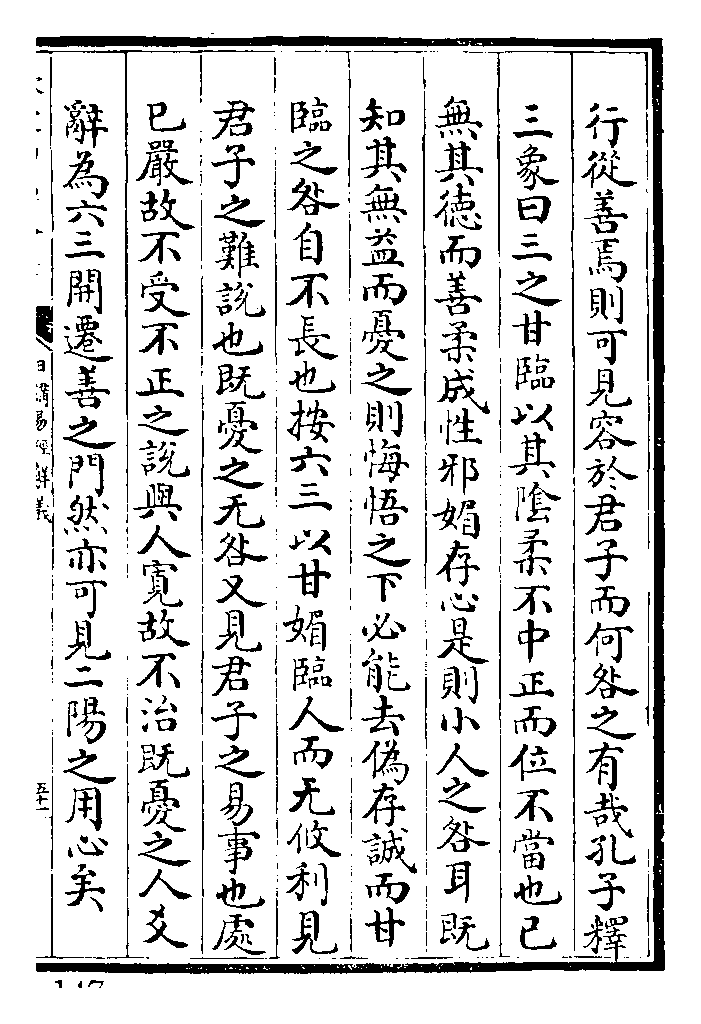 行從善焉則可見容於君子而何咎之有哉孔子釋
三象曰三之甘臨以其陰柔不中正而位不當也已
無其德而善柔成性邪媚存心是則小人之咎耳既
知其無益而憂之則悔悟之下必能去偽存誠而甘
臨之咎自不長也按六三以甘媚臨人而无攸利見
君子之難說也既憂之无咎又見君子之易事也處
已嚴故不受不正之說與人寬故不治既憂之人爻
辭為六三開遷善之門然亦可見二陽之用心矣
日講易經解義